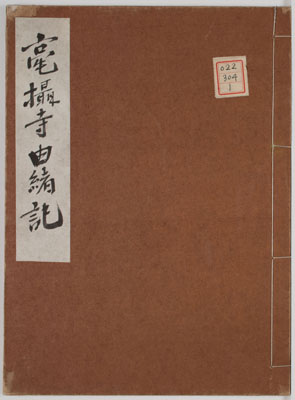 亀攝寺由緒記
022
304
1